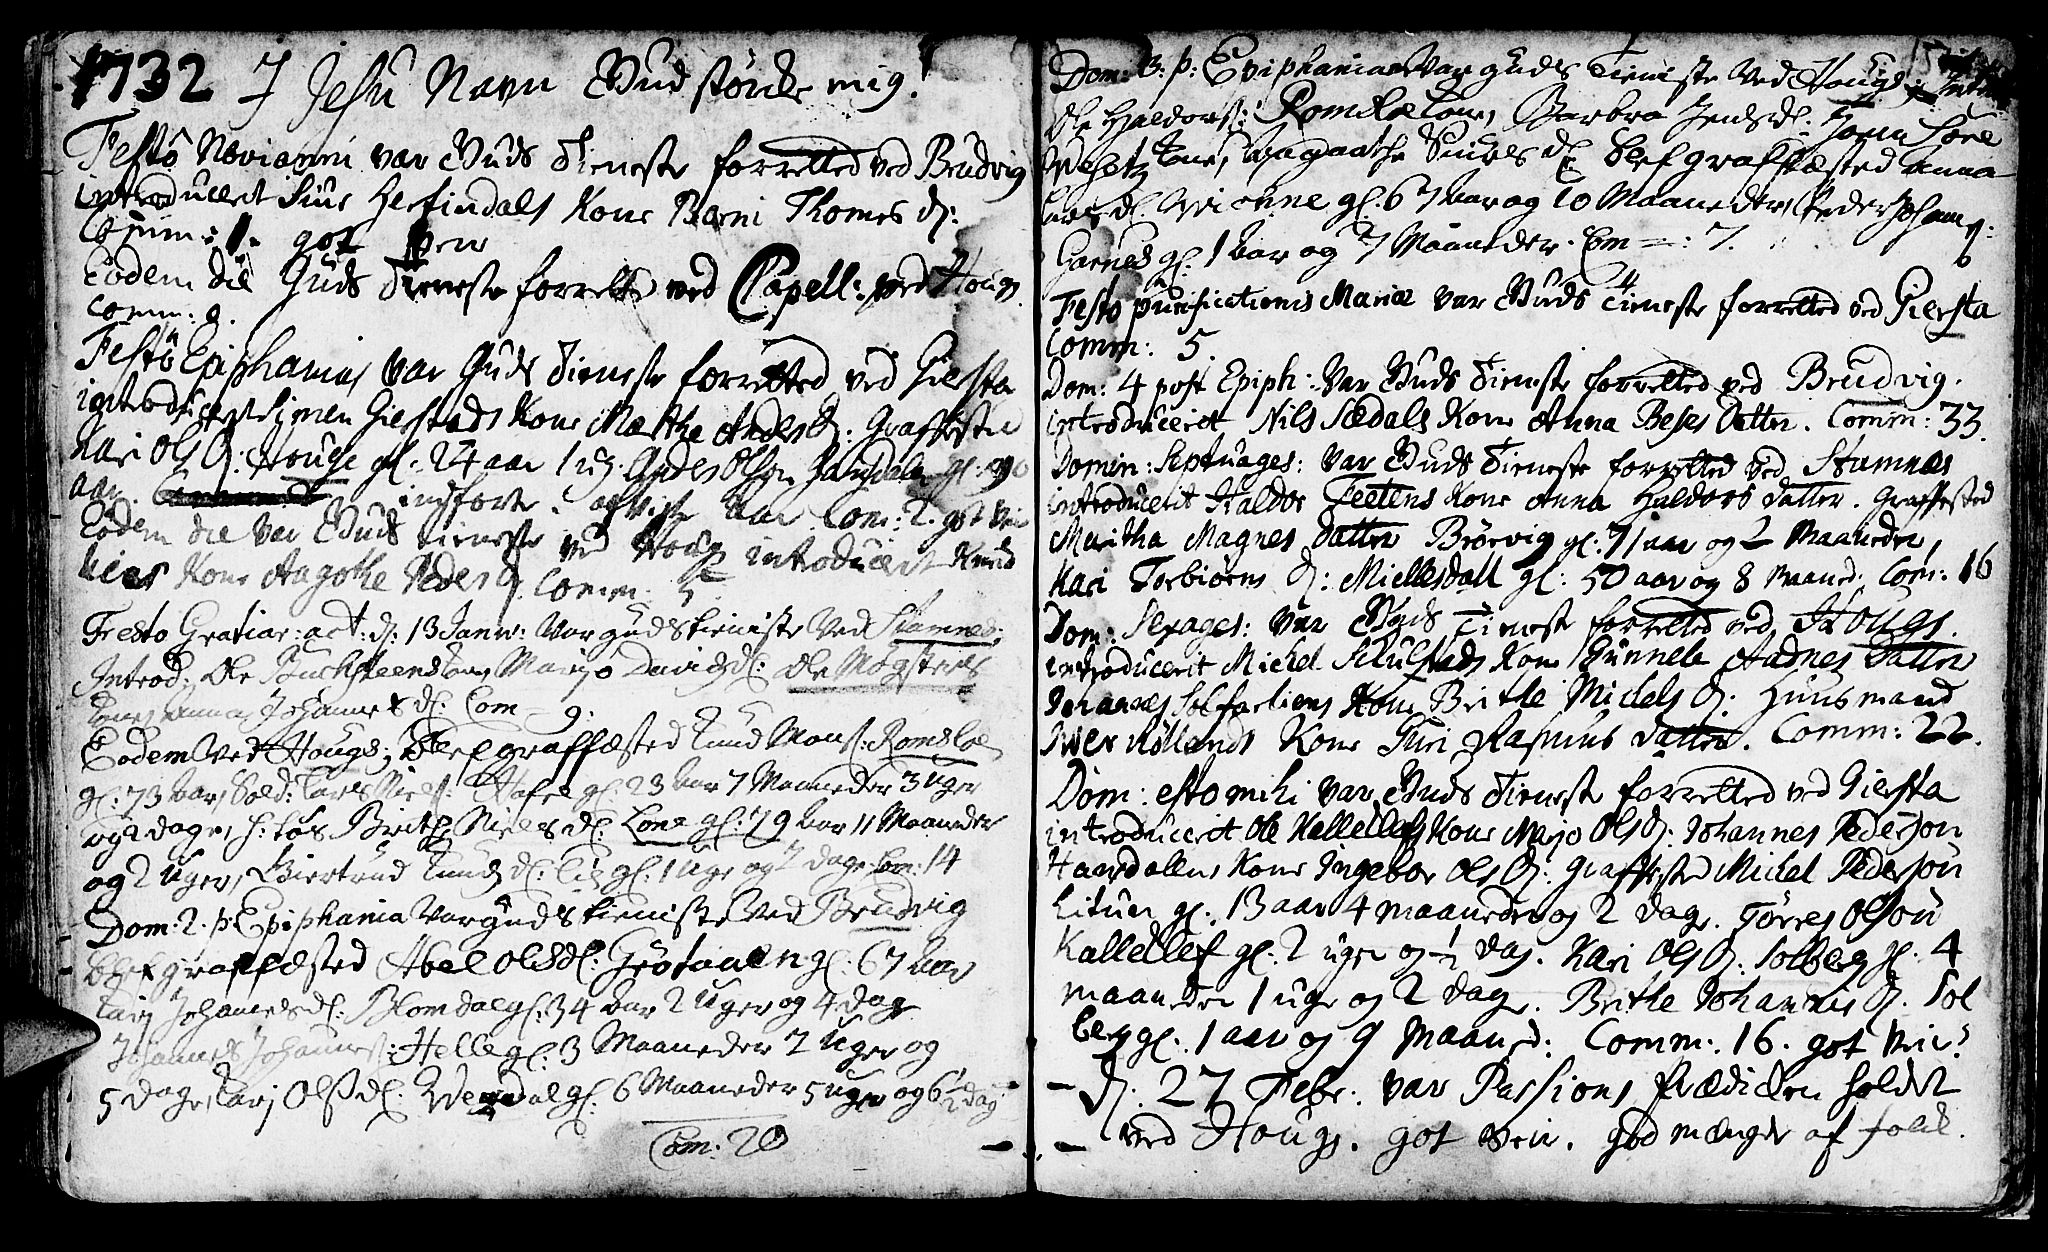 1732 I Jesu Navn Gud stÿrcke mig!
Festo Novi anni var Guds Tieneste forretted ved Brudvig
introducerit Siur Herfindals Kone Barni Thomes d:
Comm: 1. got
Eodem die Guds Tieneste forretted ved Capell: ved Hougs
Comm: 9.
Festo Epiphanias var Guds Tieneste forretted ved Giersta
introducerit Simen Gierstads Kone Marthe Anders d: Graffæsted
Kari Ols d: Houge gl: 24 aar 1 ug: Anders Olsen gl: 90
aar. indførte. Com: 2. got veir
Eodem die var Guds tieneste ved Houg introducerit Knud
Kone Aagothe Peders d. Comm: 5
Festo Gratiar: act: d: 13 Janv: var guds tieniste ved Stamnes;
Introd; Ole Buchsteens kone Marjo Davids d: Ole Mogsters
kone, Anna Johannes d: Com = 9.
Eodem ved Hougs; blef graffæsted Knud Mons s: Romslo
gl: 73 aar, Sold: Lars Niels: gl 23 aar 7 Maaneder 3 uger
og 2 dage, h: løs Brithe Niels d: Lone gl: 79 aar 11 Maaneder
og 2 uger, Giertrud Knuds d: gl: 1 uge og 2 dage Com: 14
Dom: 2. p: Epiphania var guds tieniste ved Brudvig
blef graffæsted Abel Ols d: Grøtaaen gl: 67 aar
Karj Johannes d: Blomdal gl: 34 aar 2 uger og 4 dage
Johannes Johannes s: Helle gl: 3 Maaneder 2 uger og
5 dage, Karj Ols d: gl: 6 Maaneder 5 uger og 6 1/2 dag
Com: 20
Dom: 3. p: Epiphanias var guds tieniste ved Hougs; Introd
Ole Haldors s: Romslo kone, Barbra Jens d:
kone, Aagaathe Siurs d: blef graffæsted Anna
Lars d: gl: 67 aar og 10 Maaneder, Peder Johann s:
Garnes gl: 1 aar og 7 Maaneder. Com = : 7.
Festo purificationis Mariæ var Guds Tieneste forretted ved Giersta
Comm: 5.
Dom: 4 post Epiph: var Guds Tieneste forretted ved Brudvig.
introducerit Nils Sædals Kone Anna Beses Datter. Comm: 33.
Domin: Septuages: var Guds Tieneste forretted ved Stamnes
introducerit Haldor Teetens Kone Anna Haldors datter. Graffæsted
Maritha Magnes datter Brørvig gl: 71 aar og 2 Maaneder,
Kari Torbiørns d: Miellesdall gl: 50 aar og 8 maaned. Com: 16
Dom: Sexages: var Guds Tieneste forretted ved Hougs.
introducerit Michel Skulstads Kone Gunnele Aadnes Datter
Kone Brithe Michels d: Huusmand
Iver Røllands Kone Guri Rasmus datter. Comm: 22.
Dom: esto mihi var Guds Tieneste forretted ved Giersta
introducerit Ole Kallellefs Kone Marjo Ols d: Johannes Pederson
Hansdallens Kone Ingebor Ols d: Graffæsted Michel Pederson
Litun gl: 13 aar 4 maaneder og 2 dage. Tørres Olson
Kallellef gl: 2 uger og 1/2 dag. Kari Ols d: Solberg gl: 4
maaneder 1 uge og 2 dage. Brithe Johannis d: Sol
berg gl: 1 aar og 9 maaned: Comm: 16. got veir
d: 27 Febr: var Passions Prædicken holdet
ved Hougs. got veir. god mængde af folck.